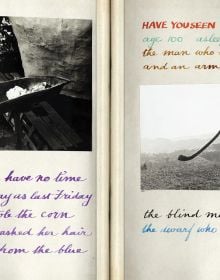 have no time
ay us last Friday
ole the corn
ashed her hair
from the blue
HAVE YOU SEEN
age 100 aslee
the man who
and an arm
the blind m
the dwarf who